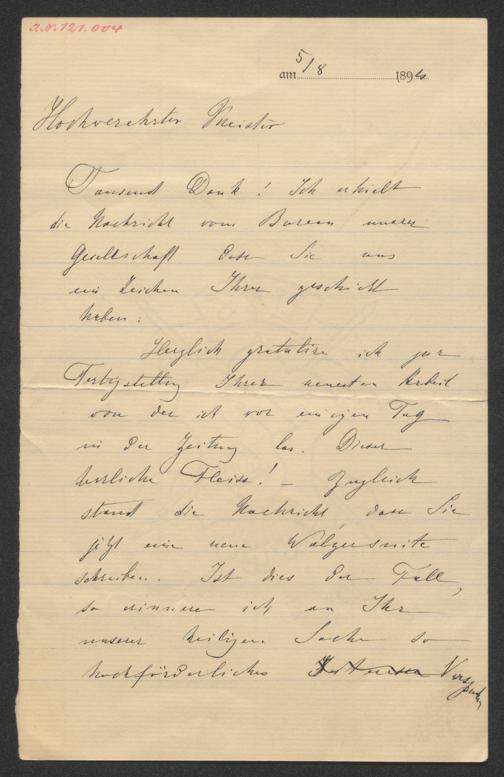 I.N. 121.004
am 5/8 189
Hochverehrter Meister
Tausend Dank! Ich erhielt
die Nachricht vom Bureau unserer
Gesellschaft dass Sie uns
ein Zeichen Ihrer geschickt
haben:
Herzlich gratulire ich zur
Fertigstellung Ihrer neuesten Arbeit
von der ich vor einigen Tag
in der Zeitung las. Dieser
herrliche Fleiss! – Zugleich
stand die Nachricht, dass Sie
jetzt eine neue Walzersuite
schreiben. Ist dies der Fall,
so erinnere ich an Ihr
unserer heiligen Sache so
hochförderliches Versprechen